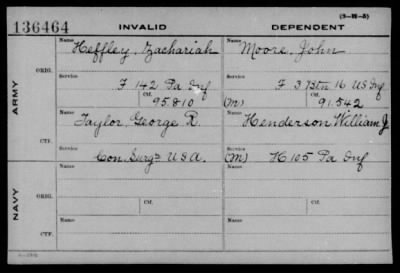 (3-111-3)
136464 INVALID DEPENDENT
Name Heffley, Zachariah Name Moore, John
ORIG.
Service F 142 Pa Inf Service F 3 Btn 16 US Inf
Ctf. 95.810 (M) Ctf. 91.542
ARMY
Name Taylor, George R. Name Henderson William J.
CTF.
Service Con. Surgn U.S.A. Service (M) H 105 Pa Inf
Name Ctf. Name Ctf.
ORIG.
Service Service
NAVY
Name Name
CTF.